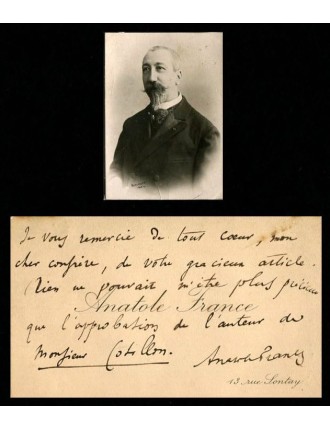 Je vous remercie de tout cœur, mon
cher confrère, de votre gracieux article.
Rien ne pouvait m'être plus précieux
Anatole France
que l'approbation de l'auteur de
Monsieur
Anatole France
13 rue